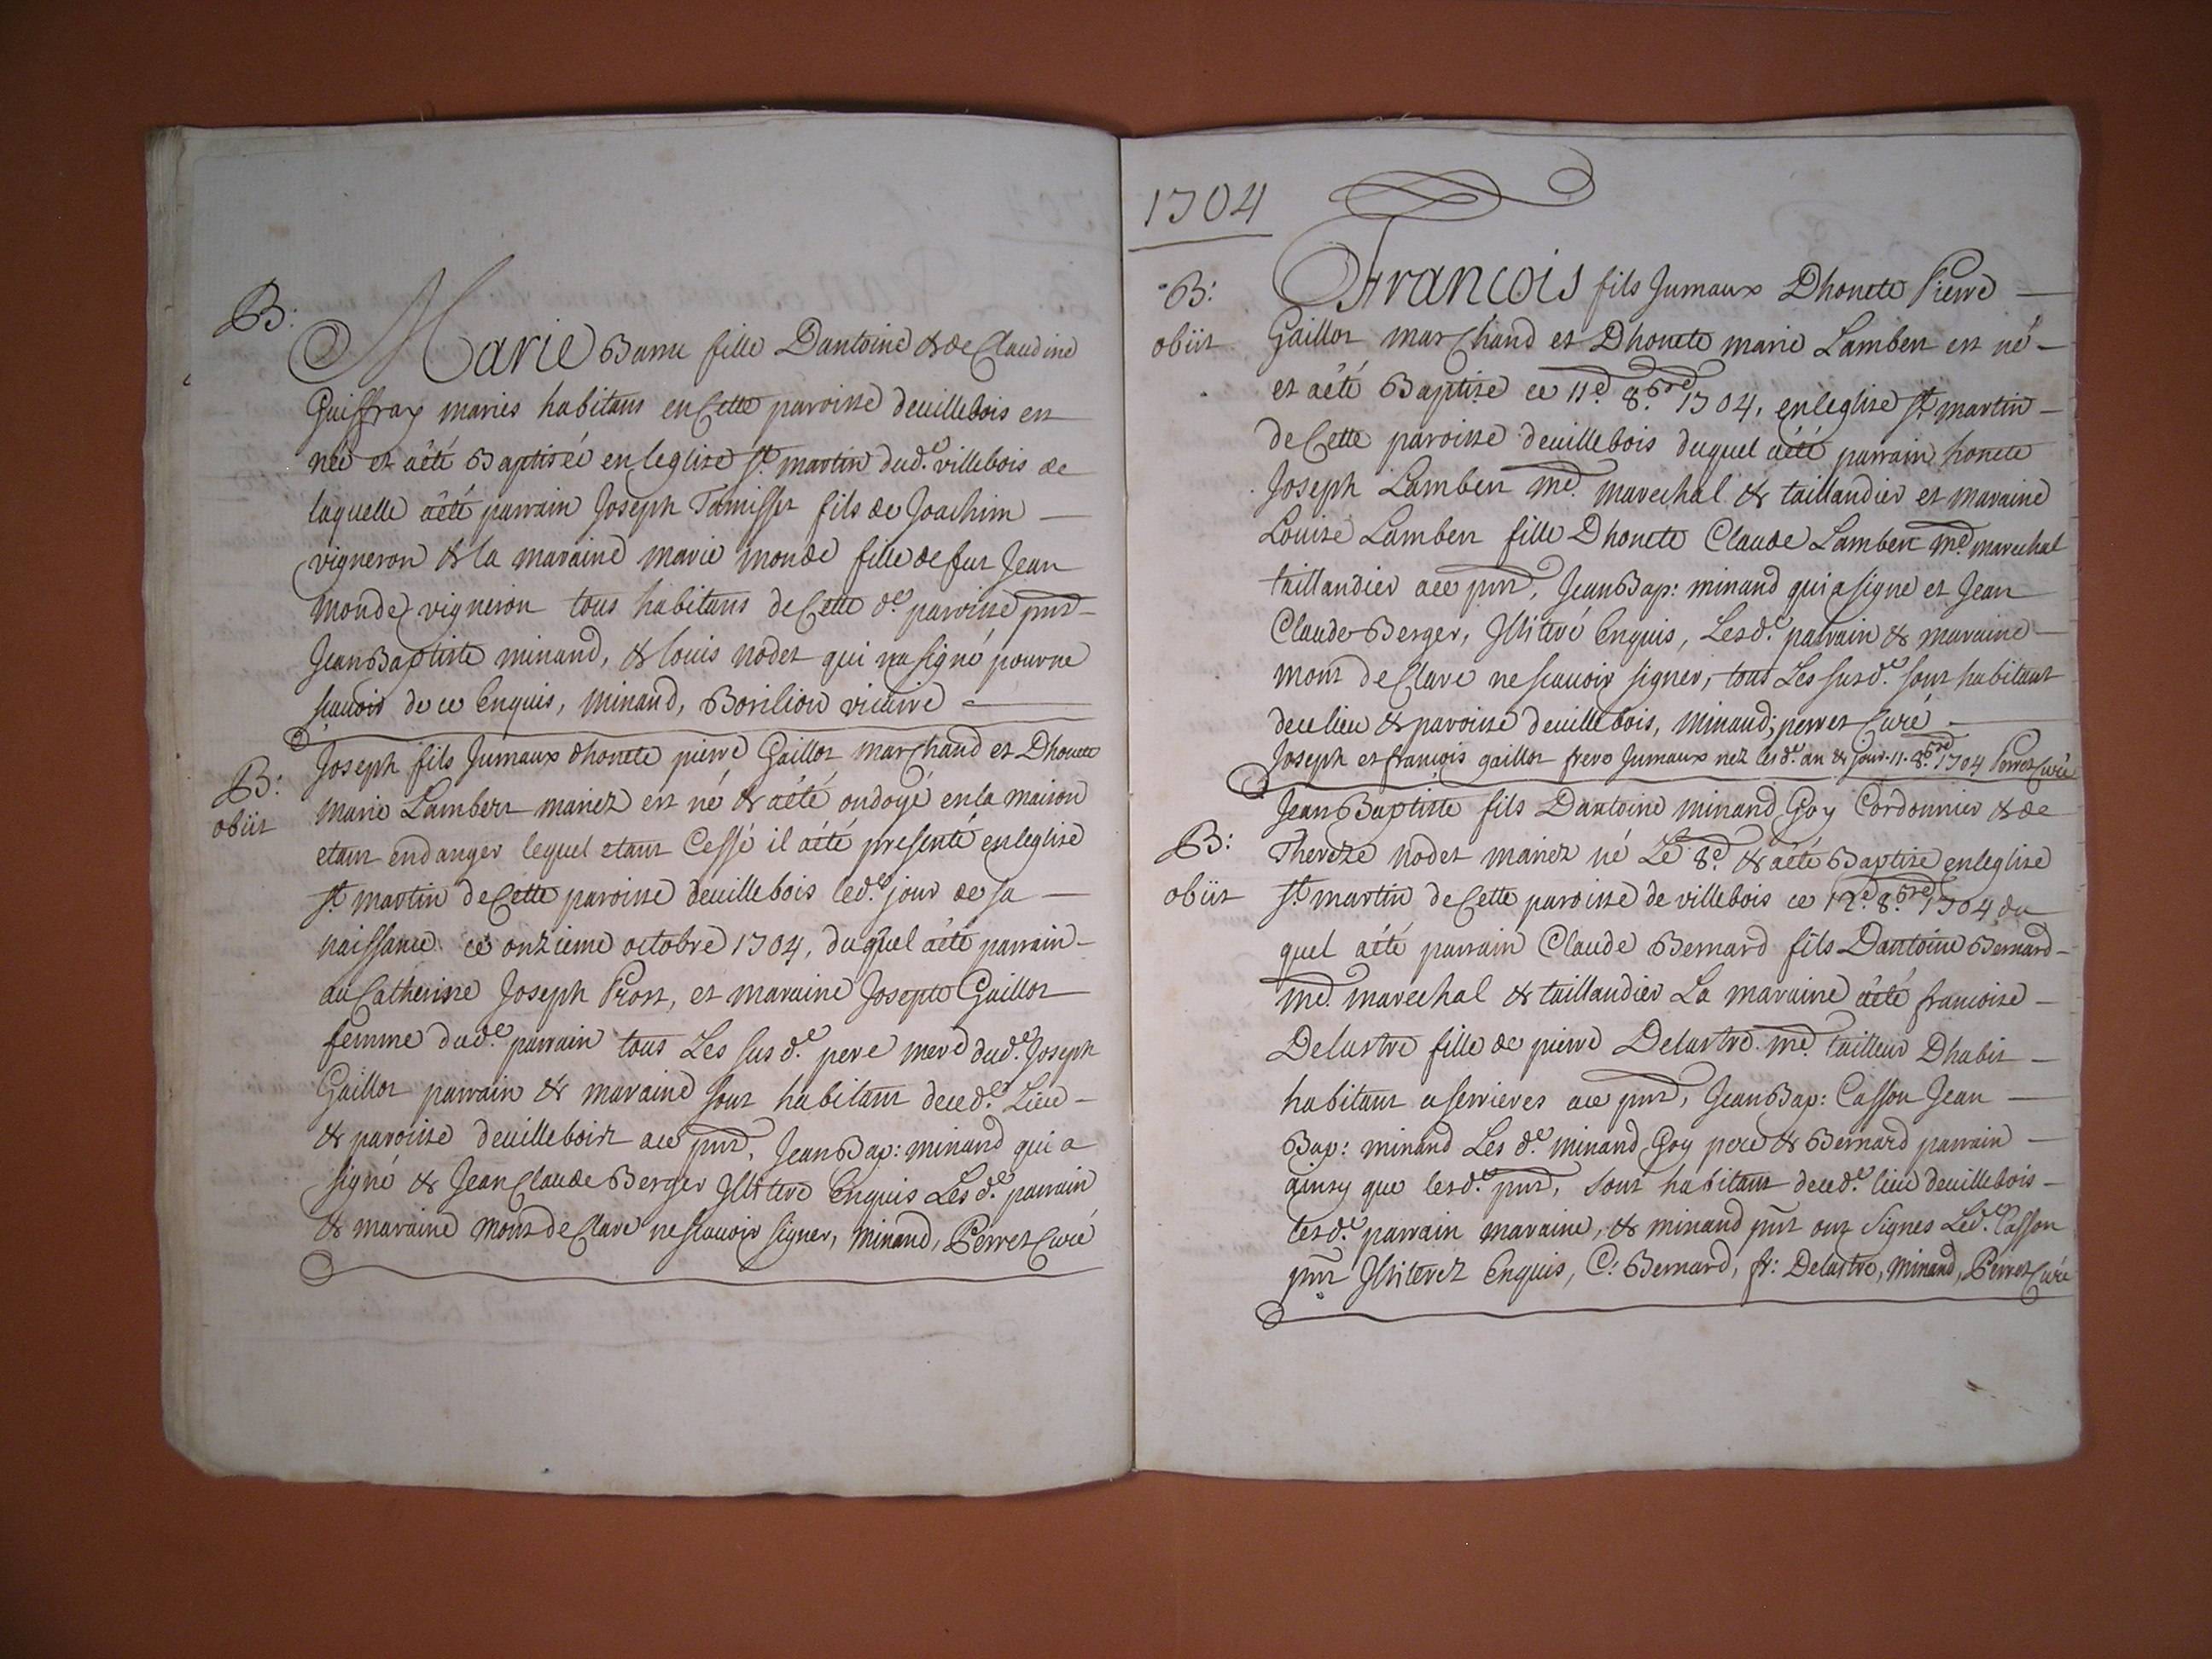 B:
Marie Barru fille Dantoine & de Claudine
Guiffray maries habitans en Cette paroisse deuillebois est
née et aété Baptisée en leglise st. martin dud.e villebois de
laquelle aêté parrain Joseph Tamisser fils de Joachim —
vigneron & la maraine marie monde fille de fut Jean
monde vigneron tous habitans de Cette d.e paroisse pnt —
Jean Baptiste minand, & louis nodet qui na signé pour ne
scauoir de ce Enquis, minand, Borilion vicaire
B:
obiit
Joseph fils Jumaux dhonete pierre Gaillot marchand et Dhonete
Marie Lambert mariez est né & aété ondoyé en la maison
etant en danger lequel etant Cessé il aété presenté en leglise
st. martin de Cette paroisse deuillebois led.e jour de sa —
naissance ce onzieme octobre 1704, duquel aété parrain —
au Catherine Joseph Prost, et maraine Josepte Gaillot
femme dud.e parrain tous Les sus d.e pere mere dud.e Joseph
Gaillot parrain & maraine sont habitant de ced.e Lieu —
& paroisse deuilleboist ace pnt, Jean Bap: minand qui a
signé & Jean Claude Berger Illiteré Enquis Les d.e parrain
& maraine mont de Claré ne scauoir signer, minand, Perret Curé
1704
B:
obiit
Francois fils Jumaux Dhonete Pierre —
Gaillot marchand et Dhonete marie Lambert est né —
et aêté Baptize ce 11e 8.bre 1704, en leglise st. martin —
de Cette paroisse deuillebois duquel aété parrain honete
Joseph Lambert md. marechal & taillandier et maraine
Louise Lambert fille Dhonete Claude Lambert md. marechal
taillandier ace pnt, Jean Bap: minand qui a signe et Jean
Claude Berger, Illiteré Enquis, Lesd.e parrain & maraine —
mont de Claré ne scauoir signer, tous Les susd.e sont habitant
de ce lieu & paroisse deuillebois, minand, perret Curé —
Joseph et françois gaillot frere Jumaux nez lesd.e an & jour 11. 8.bre 1704 Perret Curé
B:
obiit
Jean Baptiste fils Dantoine minand Goy Cordonnier & de
Thereze nodet mariez né Le 8e & aété Baptize en leglise
st. martin de Cette paroisse de villebois ce 12e 8.bre 1704 du
quel aété parrain Claude Bernard fils Dantoine Bernard —
md. marechal & taillandier La maraine aêté francoise —
Delastre fille de pierre Delastre md. tailleur Dhabit —
habitant a serrieres ace pnt, Jean Bap: Casson Jean —
Bap: minand Les d.e minand Goy pere & Bernard parrain —
ainsy que lesd.e pnt, sont habitant de ced.e lieu deuillebois —
lesd.e parrain maraine, & minand pnt ont Signes Led.e Casson
pnt Illiterez Enquis, C: Bernard, fr: Delastre, minand, Perret Curé